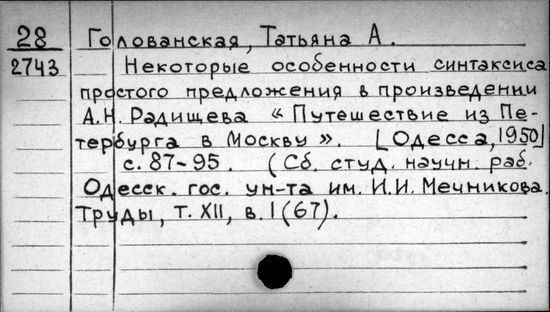 28 Голованская, Татьяна А.
2743 Некоторые особенности синтаксиса
простого предложения в произведении
А.Н. Радищева "Путешествие из Пе-
тербурга в Москву". [Одесса, 1950]
с. 87-95. (Сб. студ. научн. раб.
Одесск. гос. ун-та им. И.И. Мечникова.
Труды, т. XII, в. I (67).